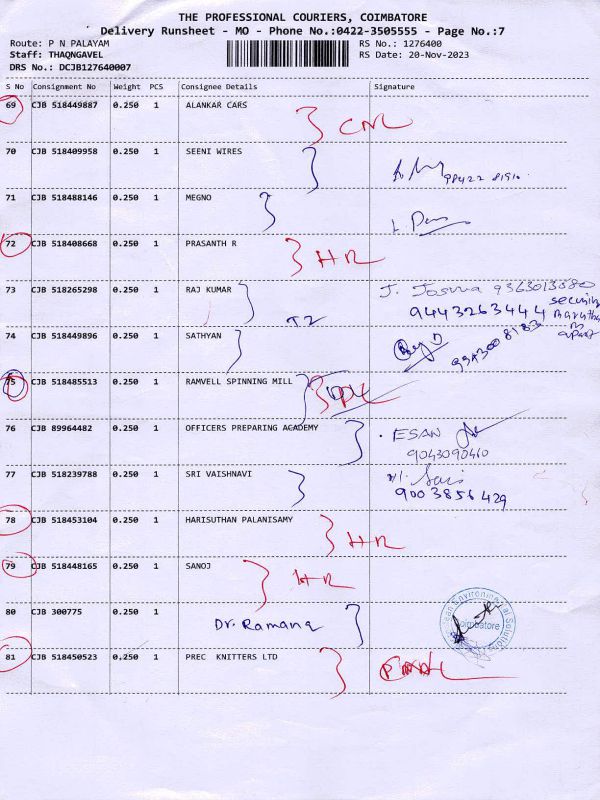 THE PROFESSIONAL COURIERS, COIMBATORE
Delivery Runsheet - MO - Phone No.:0422-3505555 - Page No.:7
Route: P N PALAYAM RS No.: 1276400
Staff: THAQNGAVEL RS Date: 20-Nov-2023
DRS No.: DCJB127640007
S No Consignment No Weight PCS Consignee Details Signature
69 CJB 518449887 0.250 1 ALANKAR CARS
70 CJB 518409958 0.250 1 SEENI WIRES
71 CJB 518488146 0.250 1 MEGNO
72 CJB 518408668 0.250 1 PRASANTH R
HR
73 CJB 518265298 0.250 1 RAJ KUMAR
9443263444
security
74 CJB 518449896 0.250 1 SATHYAN
75 CJB 518485513 0.250 1 RAMVELL SPINNING MILL
76 CJB 89964482 0.250 1 OFFICERS PREPARING ACADEMY ESAN
9043090460
77 CJB 518239788 0.250 1 SRI VAISHNAVI
9003856429
78 CJB 518453104 0.250 1 HARISUTHAN PALANISAMY
HR
79 CJB 518448165 0.250 1 SANOJ
HR
80 CJB 300775 0.250 1 Dr. Ramana
Coimbatore
81 CJB 518450523 0.250 1 PREC KNITTERS LTD